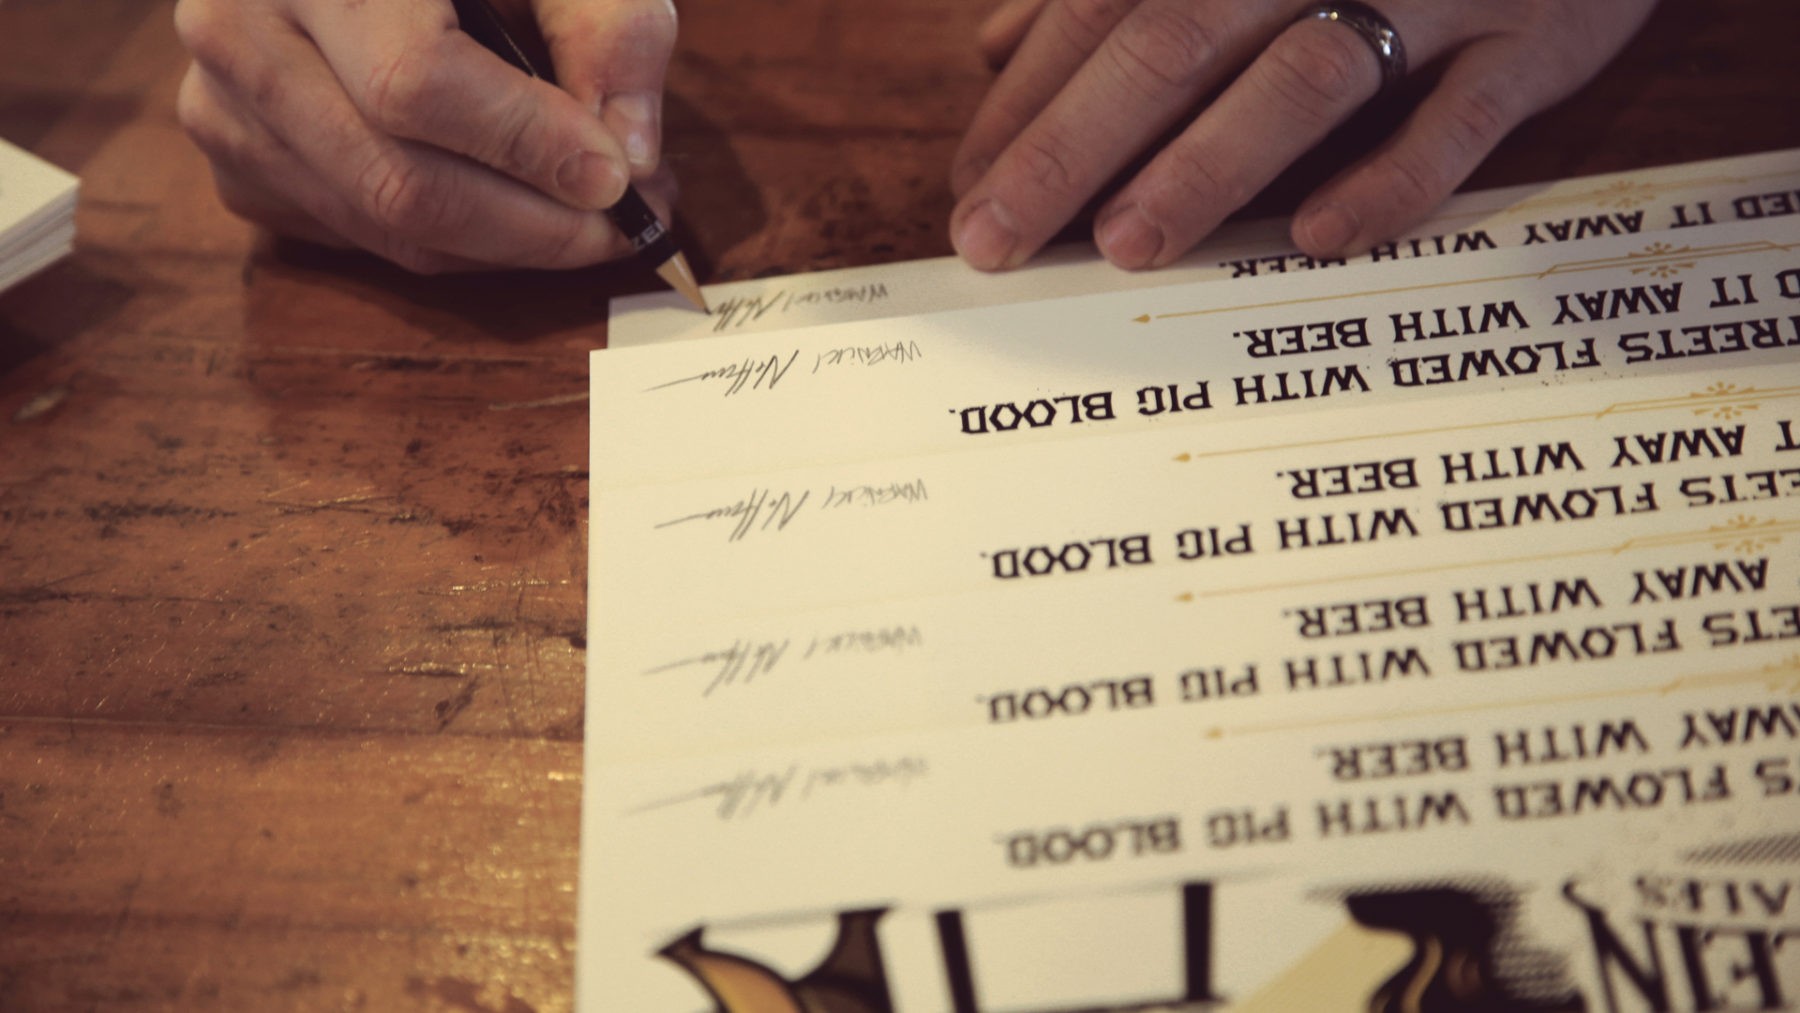 LEIN
ALES
TS FLOWED WITH PIG BLOOD.
AWAY WITH BEER.
ETS FLOWED WITH PIG BLOOD.
AWAY WITH BEER.
EETS FLOWED WITH PIG BLOOD.
T AWAY WITH BEER.
TREETS FLOWED WITH PIG BLOOD.
D IT AWAY WITH BEER.
NED IT AWAY WITH BEER.